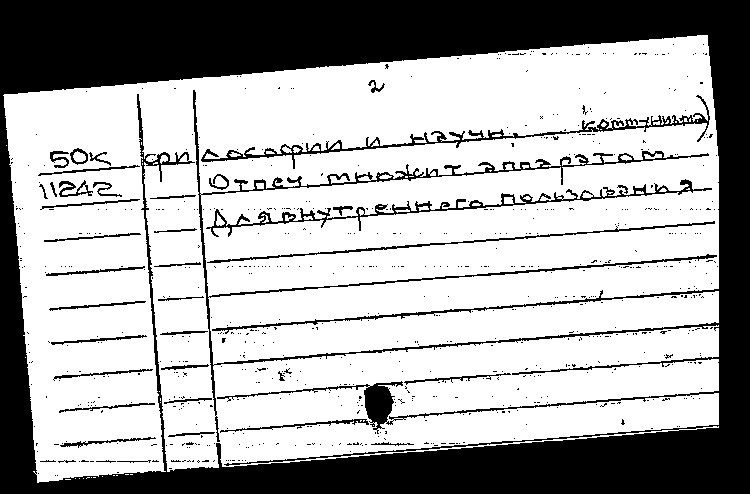 2
50к фи лософии и научн. коммунизма)
11242 Отпеч. множит. аппаратом.
Для внутреннего пользования